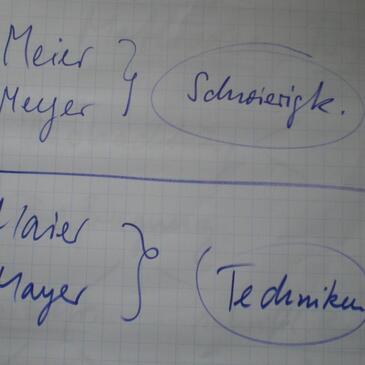 Meier
Meyer
Schwierigk.
Maier
Mayer
Techniken